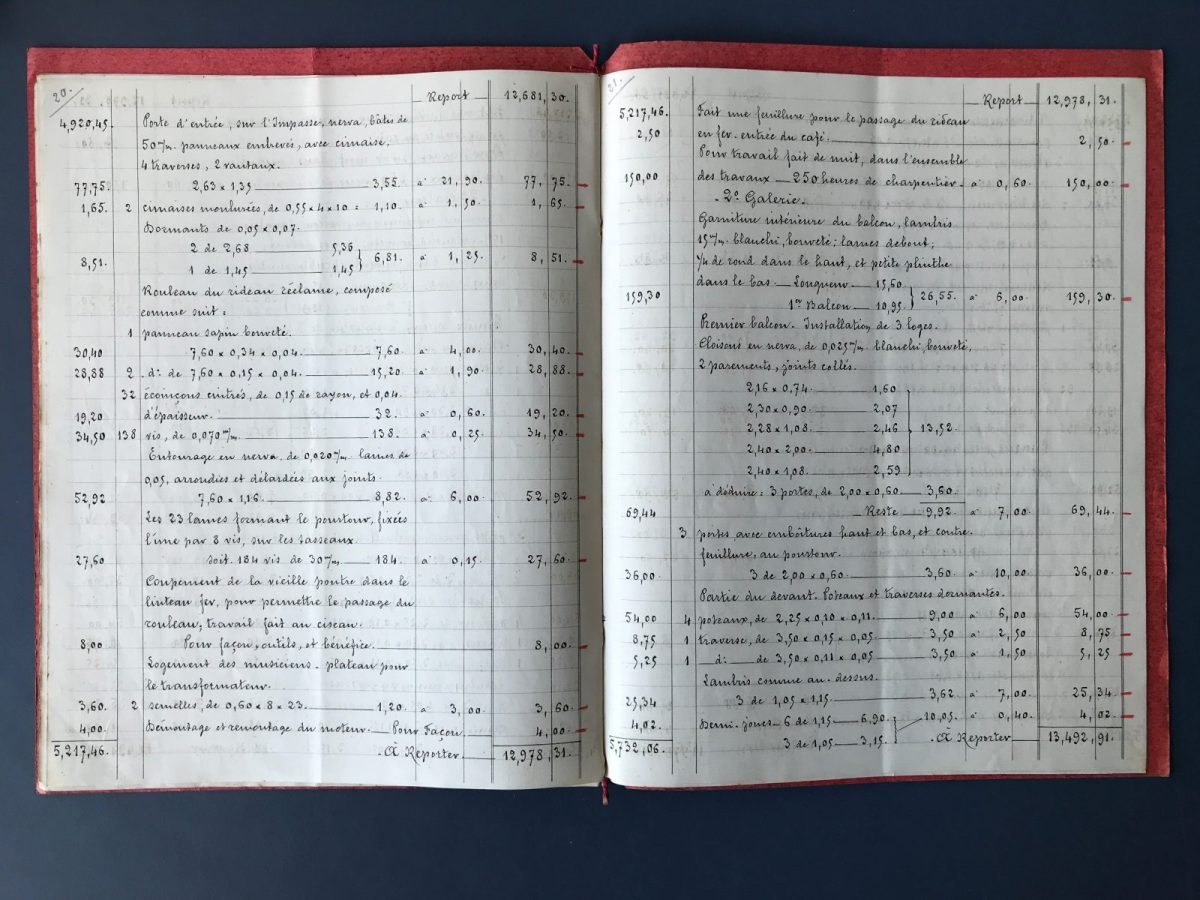 20.
Report 12,681, 30.
4,920,45. Porte d'entrée, sur l'Impasse, nerva, bâtis de
50 m/m. panneaux embrevés, avec cimaise,
4 traverses, 2 vantaux.
77,75. 2,63 x 1,35 3,55 à 21, 90. 77, 75.
1,65. 2 cimaises moulurées, de 0,55 x 4 x 10 = 1,10. à 1, 50. 1, 65.
Dormants de 0,05 x 0,07.
2 de 2,68 5,36
8,51. 6,81. à 1, 25. 8, 51.
1 de 1,45 1,45
Rouleau du rideau réclame, composé
comme suit :
1 panneau sapin bouveté.
30,40 7,60 x 0,34 x 0,04. 7,60. à 4, 00. 30, 40.
28,88 2 d: de 7,60 x 0,15 x 0,04. 15,20. à 1, 90. 28, 88.
32 écoinçons cintrés, de 0,15 de rayon, et 0,04
19,20 d'épaisseur. 32. à 0, 60. 19, 20.
34,50 138 vis, de 0,070 m/m. 138. à 0, 25. 34, 50.
Entourage en nerva de 0,020 m/m. lames de
0,05, arrondies et délardées aux joints.
52,92 7,60 x 1,16. 8,82. à 6, 00. 52, 92.
Les 23 lames formant le pourtour, fixées
l'une par 8 vis, sur les tasseaux.
27,60 soit 184 vis de 30 m/m. 184. à 0,15. 27, 60.
Coupement de la vieille poutre dans le
linteau fer, pour permettre le passage du
rouleau; travail fait au ciseau.
8,00 Pour façon, outils, et bénéfice. 8, 00.
Logement des musiciens. plateau pour
le transformateur.
3,60. 2 semelles, de 0,60 x 8 x 23. 1,20. à 3, 00. 3, 60.
4,00. Démontage et remontage du moteur. Pour Façon. 4, 00.
5,217,46. À Reporter. 12,978, 31.
21.
Report 12,978, 31.
5,217,46. Fait une feuillure pour le passage du rideau
2,50 en fer. entrée du café. 2, 50.
Pour travail fait de nuit, dans l'ensemble
150,00 des travaux — 250 heures de charpentier. à 0, 60. 150, 00.
- 2e Galerie.
Garniture intérieure du balcon, lambris
15 m/m. blanchi, bouveté; lames debout;
1/4 de rond dans le haut, et petite plinthe
dans le bas — Longueur 15,60
159,30 26,55. à 6, 00. 159, 30.
1er Balcon 10,95
Premier balcon. Installation de 3 loges.
Cloisons en nerva, de 0,025 m/m. blanchi, bouveté,
2 parements, joints collés.
2,16 x 0,74. 1,60
2,30 x 0,90. 2,07
2,28 x 1,08. 2,46 13,52.
2,40 x 2,00. 4,80
2,40 x 1,08. 2,59
à déduire : 3 portes, de 2,00 x 0,60 3,60.
69,44 Reste 9,92 à 7, 00. 69, 44.
3 portes avec emboîtures haut et bas, et contre
feuillure, au pourtour.
36,00. 3 de 2,00 x 0,60. 3,60. à 10, 00. 36, 00.
Partie du devant. Poteaux et traverses dormantes.
54,00 4 poteaux, de 2,25 x 0,10 x 0,11. 9,00 à 6, 00 54, 00.
8,75 1 traverse, de 3,50 x 0,15 x 0,05 3,50 à 2, 50 8, 75
5,25 1 d: de 3,50 x 0,11 x 0,05 3,50 à 1, 50 5, 25
Lambris comme au-dessus.
25,34 3 de 1,05 x 1,15. 3,62 à 7, 00. 25, 34
4,02. Demi. joues. 6 de 1,15 6,90. 10,05. à 0, 40. 4, 02
5,732,06. 3 de 1,05 3,15. À Reporter 13,492, 91.